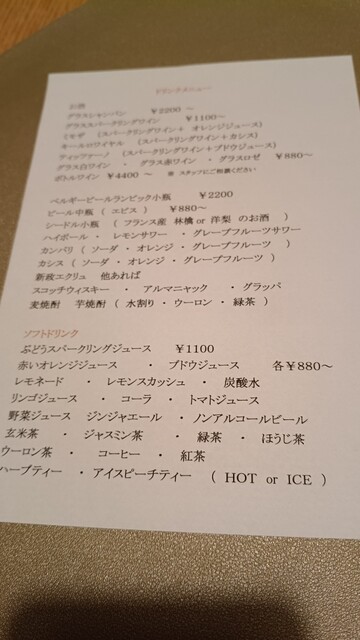 ドリンクメニュー
お酒
グラスシャンパン ￥2200 ～
グラススパークリングワイン ￥1100～
ミモザ （スパークリングワイン＋ オレンジジュース）
キールロワイヤル （スパークリングワイン＋カシス）
ティッツァーノ （スパークリングワイン＋ブドウジュース）
グラス白ワイン ・ グラス赤ワイン ・ グラスロゼ ￥880～
ボトルワイン ￥4400 ～ ※ スタッフにご相談ください
ベルギービールランビック小瓶 ￥2200
ビール中瓶 （ エビス ） ￥880～
シードル小瓶 （ フランス産 林檎 or 洋梨 のお酒 ）
ハイボール ・ レモンサワー ・ グレープフルーツサワー
カンパリ （ ソーダ ・ オレンジ ・ グレープフルーツ ）
カシス （ ソーダ ・ オレンジ ・ グレープフルーツ ）
新政エクリュ 他あれば
スコッチウィスキー ・ アルマニャック ・ グラッパ
麦焼酎 芋焼酎 （ 水割り ・ ウーロン ・ 緑茶 ）
ソフトドリンク
ぶどうスパークリングジュース ￥1100
赤いオレンジジュース ・ ブドウジュース 各￥880～
レモネード ・ レモンスカッシュ ・ 炭酸水
リンゴジュース ・ コーラ ・ トマトジュース
野菜ジュース ジンジャエール ・ ノンアルコールビール
玄米茶 ・ ジャスミン茶 ・ 緑茶 ・ ほうじ茶
ウーロン茶 ・ コーヒー ・ 紅茶
ハーブティー ・ アイスピーチティー （ HOT or ICE ）